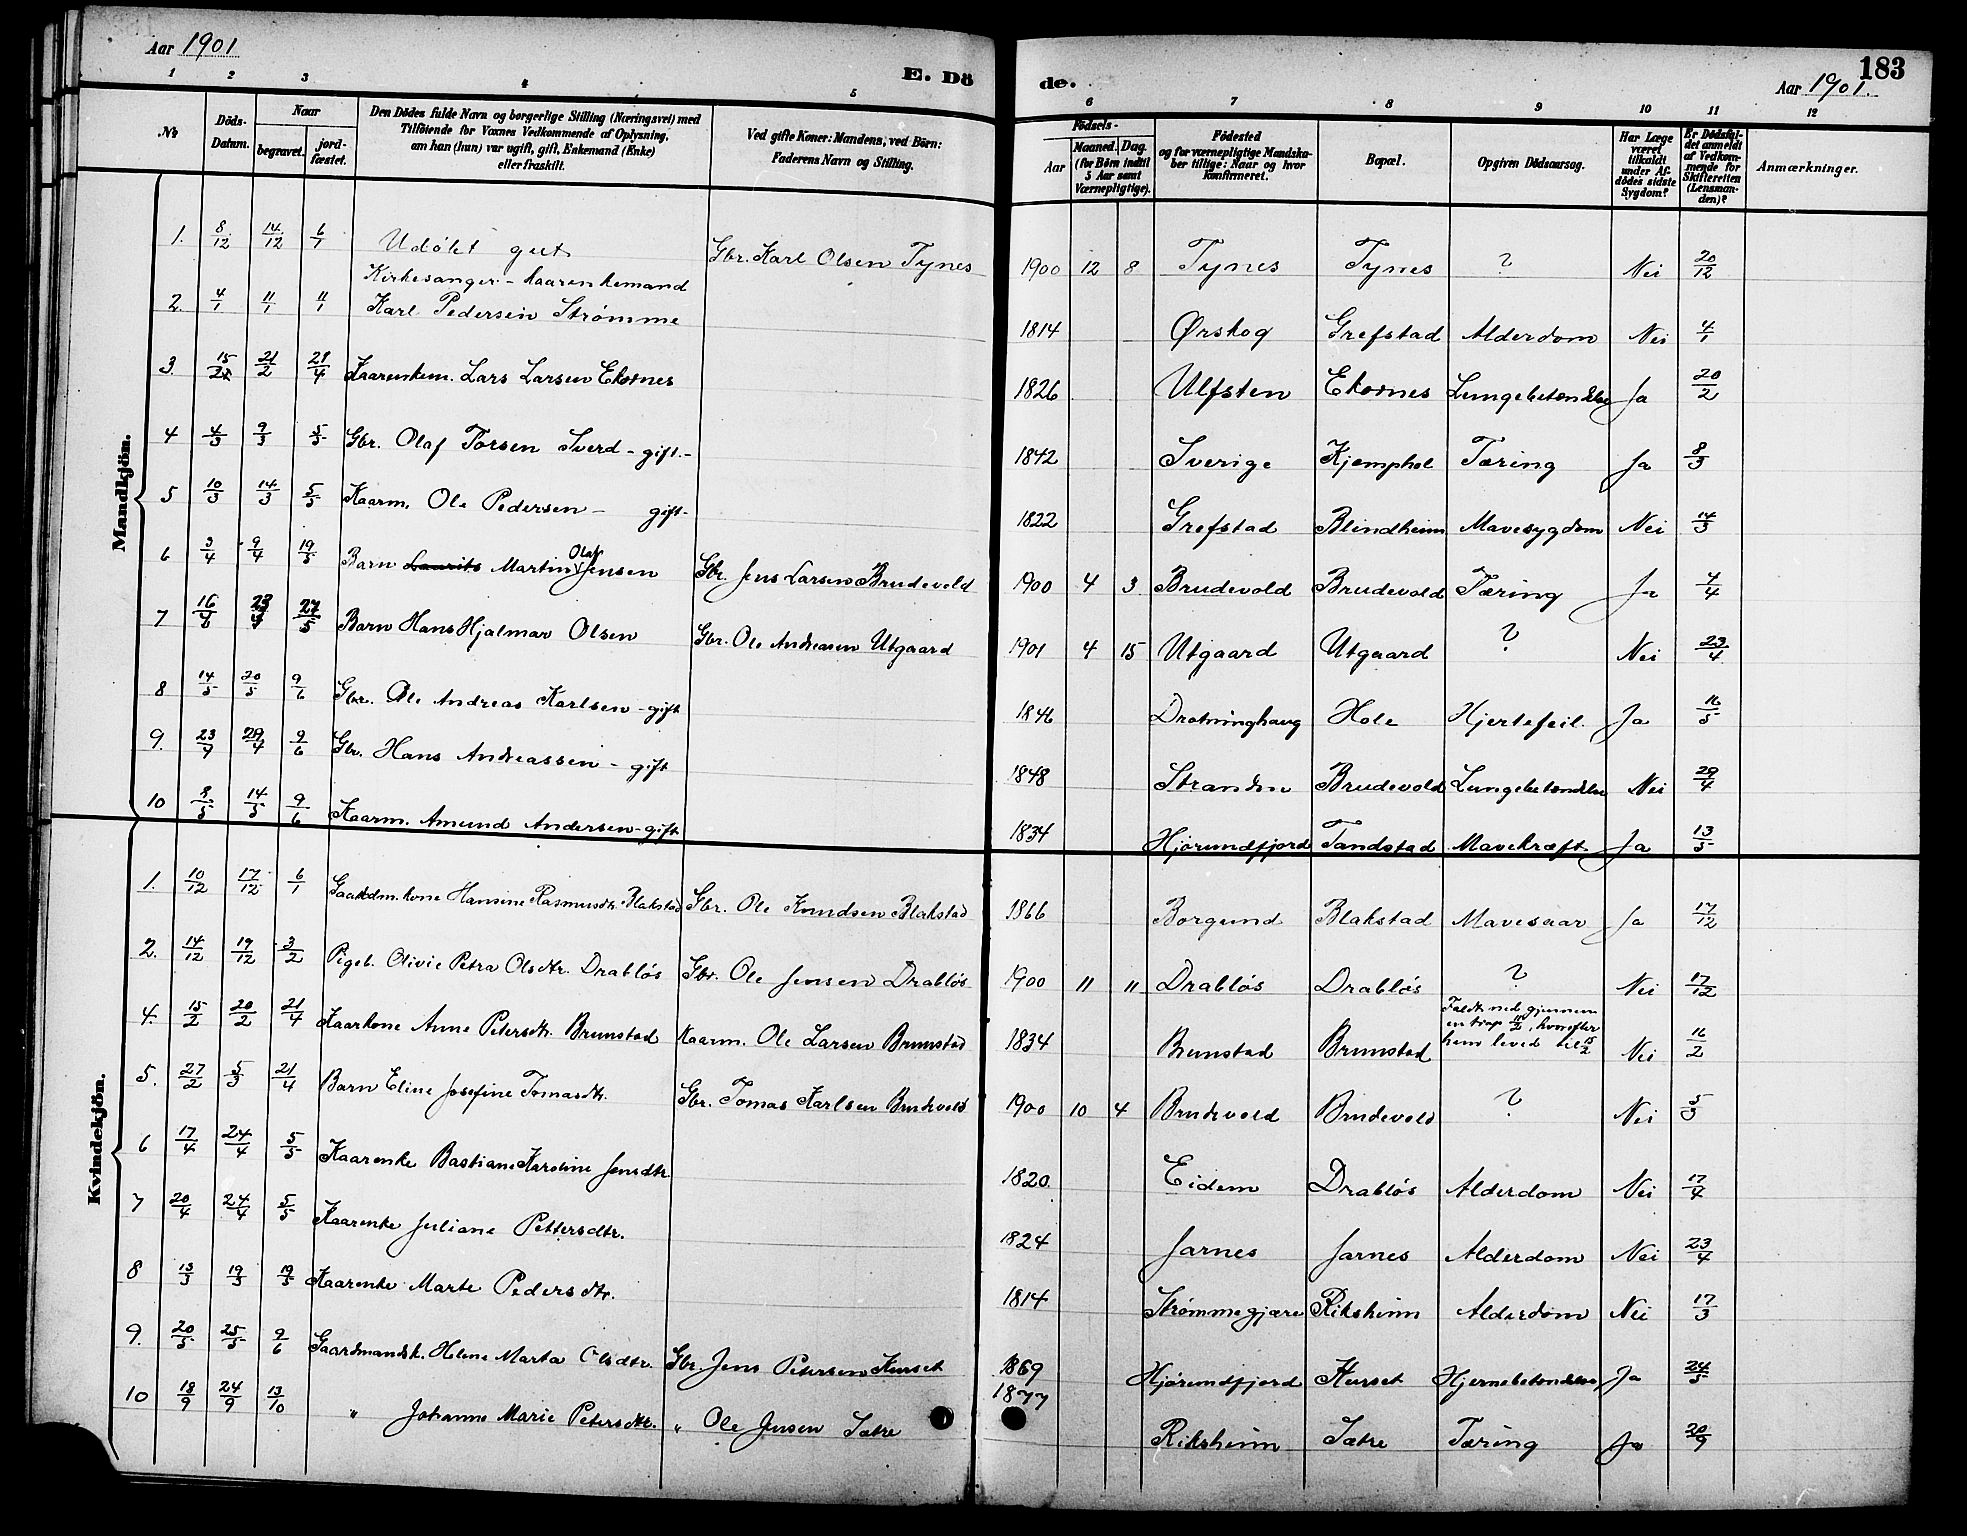 Aar 1901
E. Dö
de.
183
Aar 1901.
1 2 3 4 5 6 7 8 9 10 11 12
No
Döds-
Datum.
Naar
begravet.
jord-
fæstet.
Den Dödes fulde Navn og borgerlige Stilling (Næringsvei) med
Tilföiende for Voxnes Vedkommende af Oplysning,
om han (hun) var ugift, gift, Enkemand (Enke)
eller fraskilt.
Ved gifte Koner: Mandens, ved Börn:
Faderens Navn og Stilling.
Födsels-
Aar
Maaned. Dag.
(for Börn indtil
5 Aar samt
Værnepligtige).
Födested
og for værnepligtige Mandska-
ber tillige: Naar og hvor
konfirmeret.
Bopæl.
Opgiven Dödsaarsag.
Har Læge
været
tilkaldt
under Af-
dödes sidste
Sygdom?
Er Dödsfal-
det anmeldt
af Vedkom-
mende for
Skifteretten
(Lensman-
den)?
Anmærkninger.
Mandkjön.
1. 8/12 14/12 6/1 Udøbt gut Gbr. Karl Olsen Tynes 1900 12 8 Tynes Tynes ? Nei 20/12
Kirkesanger - kaarenkemand
2. 4/1 11/1 11/1 Karl Pedersen Strømme 1814 Ørskog Grefstad Alderdom Nei 4/1
3. 15/2 21/2 21/4 Kaarenkem. Lars Larsen Ekornes 1826 Ulfsten Ekornes Lungebetændelse Ja 20/2
4 4/3 9/3 5/5 Gbr. Olaf Torsen Sverd - gift - 1842 Sverige Kjemphol Tæring Ja 8/3
5 10/3 14/3 5/5 Kaarm. Ole Pedersen - gift - 1822 Grefstad Blindheim Mavesygdom Nei 14/3
6 3/4 9/4 19/5 Barn Laurits Martin Olaf Jensen Gbr. Jens Larsen Brudevold 1900 4 3 Brudevold Brudevold Tæring Ja 4/4
7 16/4 23/4 27/5 Barn Hans Hjalmar Olsen Gbr. Ole Andreasen Utgaard 1901 4 15 Utgaard Utgaard ? Nei 23/4
8 14/5 20/5 9/6 Gbr. Ole Andreas Karlsen - gift 1846 Drotninghaug Hole Hjertefeil. Ja 16/5
9. 23/4 29/4 9/6 Gbr. Hans Andreassen - gift 1848 Stranden Brudevold Lungebetændelse Nei 29/4
10 8/5 14/5 9/6 Kaarm. Amund Andersen - gift 1834 Hjørundfjord Tandstad Mavekræft Ja 13/5
Kvindekjön.
1. 10/12 17/12 6/1 Gaardm. kone Hansine Rasmusdtr. Blakstad Gbr. Ole Knudsen Blakstad 1866 Borgund Blakstad Mavesaar Ja 17/12
2. 14/12 19/12 3/2 Pigeb. Olivie Petra Olsdtr. Drabløs Gbr. Ole Jensen Drabløs 1900 11 11 Drabløs Drabløs ? Nei 17/12
4. 15/2 20/2 21/4 Kaarkone Anne Petersdtr. Brunstad Kaarm. Ole Larsen Brunstad 1834 Brunstad Brunstad Faldt ned gjennem
en trap 11/2, hvorefter
hun leved til 15/2 Nei 16/2
5. 27/2 5/3 21/4 Barn Eline Josefine Tomasdtr. Gbr. Tomas Karlsen Brudevold 1900 10 4 Brudevold Brudevold ? Nei 5/3
6 17/4 24/4 5/5 Kaarenke Bastiane Karoline Jensdtr 1820. Eidem Drabløs Alderdom Nei 17/4
7 20/4 24/4 5/5 Kaarenke Juliane Pettersdtr. 1824 Jarnes Jarnes Alderdom Nei 23/4
8 13/3 19/3 19/5 Kaarenke Marte Pedersdtr. 1814 Strømmegjære Riksheim Alderdom Nei 17/3
9. 20/5 25/5 9/6 Gaardmandsk. Heline Marta Olsdtr. Gbr. Jens Petersen Kurset 1869 Hjørundfjord Kurset Hjernebetændelse Ja 24/5
10 18/9 24/9 13/10 " Johanne Marie Petersdtr. " Ole Jensen Sætre 1877 Riksheim Sætre Tæring Ja 20/9